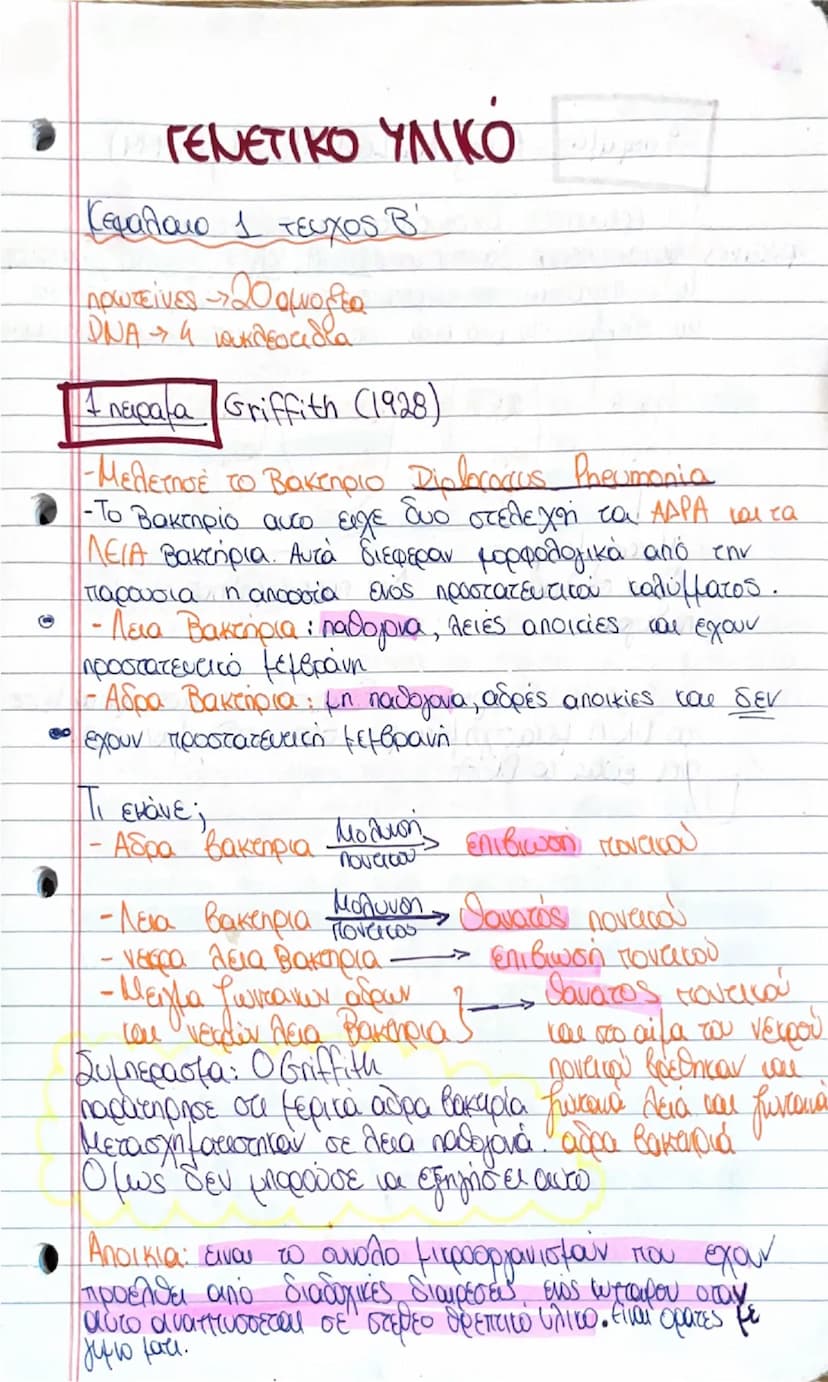 ΓΕΝΕΤΙΚΟ ΥΛΙΚΌ
Κεφαλαιο 1 τευχος Β'
πρωτεϊνες → 20 αμινοξεα
DNA → 4 νουκλεοτιδια
1 πειραμα Griffith (1928)
- Μελετησέ το Βακτηριο Diplococcus Pneumonia
- Το Βακτηρίο αυτο ειχε δυο στελεχή τα ΑΔΡΑ και τα
ΛΕΙΑ Βακτήρια. Αυτά διέφεραν μορφολογικά από την
παρουσια η απουσία ενος προστατευτικού καλύμματος.
- Λεια Βακτήρια: παθογονα, λειές αποικίες και έχουν
προστατευτικό μεμβράνη
- Αδρα Βακτήρια: μη παθογονα, αδρές αποικίες και δεν
εχουν προστατευτική μεμβρανή
Τι εκάνε;
- Αδρα βακτηρια Μολυνσή ποντικού → επιβιωσή ποντικού
- Λεια βακτηρια Μόλυνση ποντικος → θανατός ποντικού
- νεκρα λεια Βακτηρια → επιβιωσή ποντικού
- Μειγμα ζωντανων αδρων → θανατος ποντικού
και νεκρών λεια Βακτηρια} και στο αίμα του νεκρού
Συμπερασμα: Ο Griffith ποντικού βρέθηκαν και
παρατηρησε οτι μερικα αδρα βακτιρία ζωντανά λειά και ζωντανά
Μετασχηματιστηκαν σε λεια παθογονά. αδρα βακτιριά
Ομως δεν μπορούσε να εξηγήσει αυτο
Αποικια: ειναι το συνολο μικροοργανισμών που εχουν
προελθει από διαδοχικές διαιρέσεις ενός κυτταρου οταν
αυτο αναπτυσσεται σε στερεο θρεπτικο υλικο. Είναι ορατες με
γυμνο ματι.